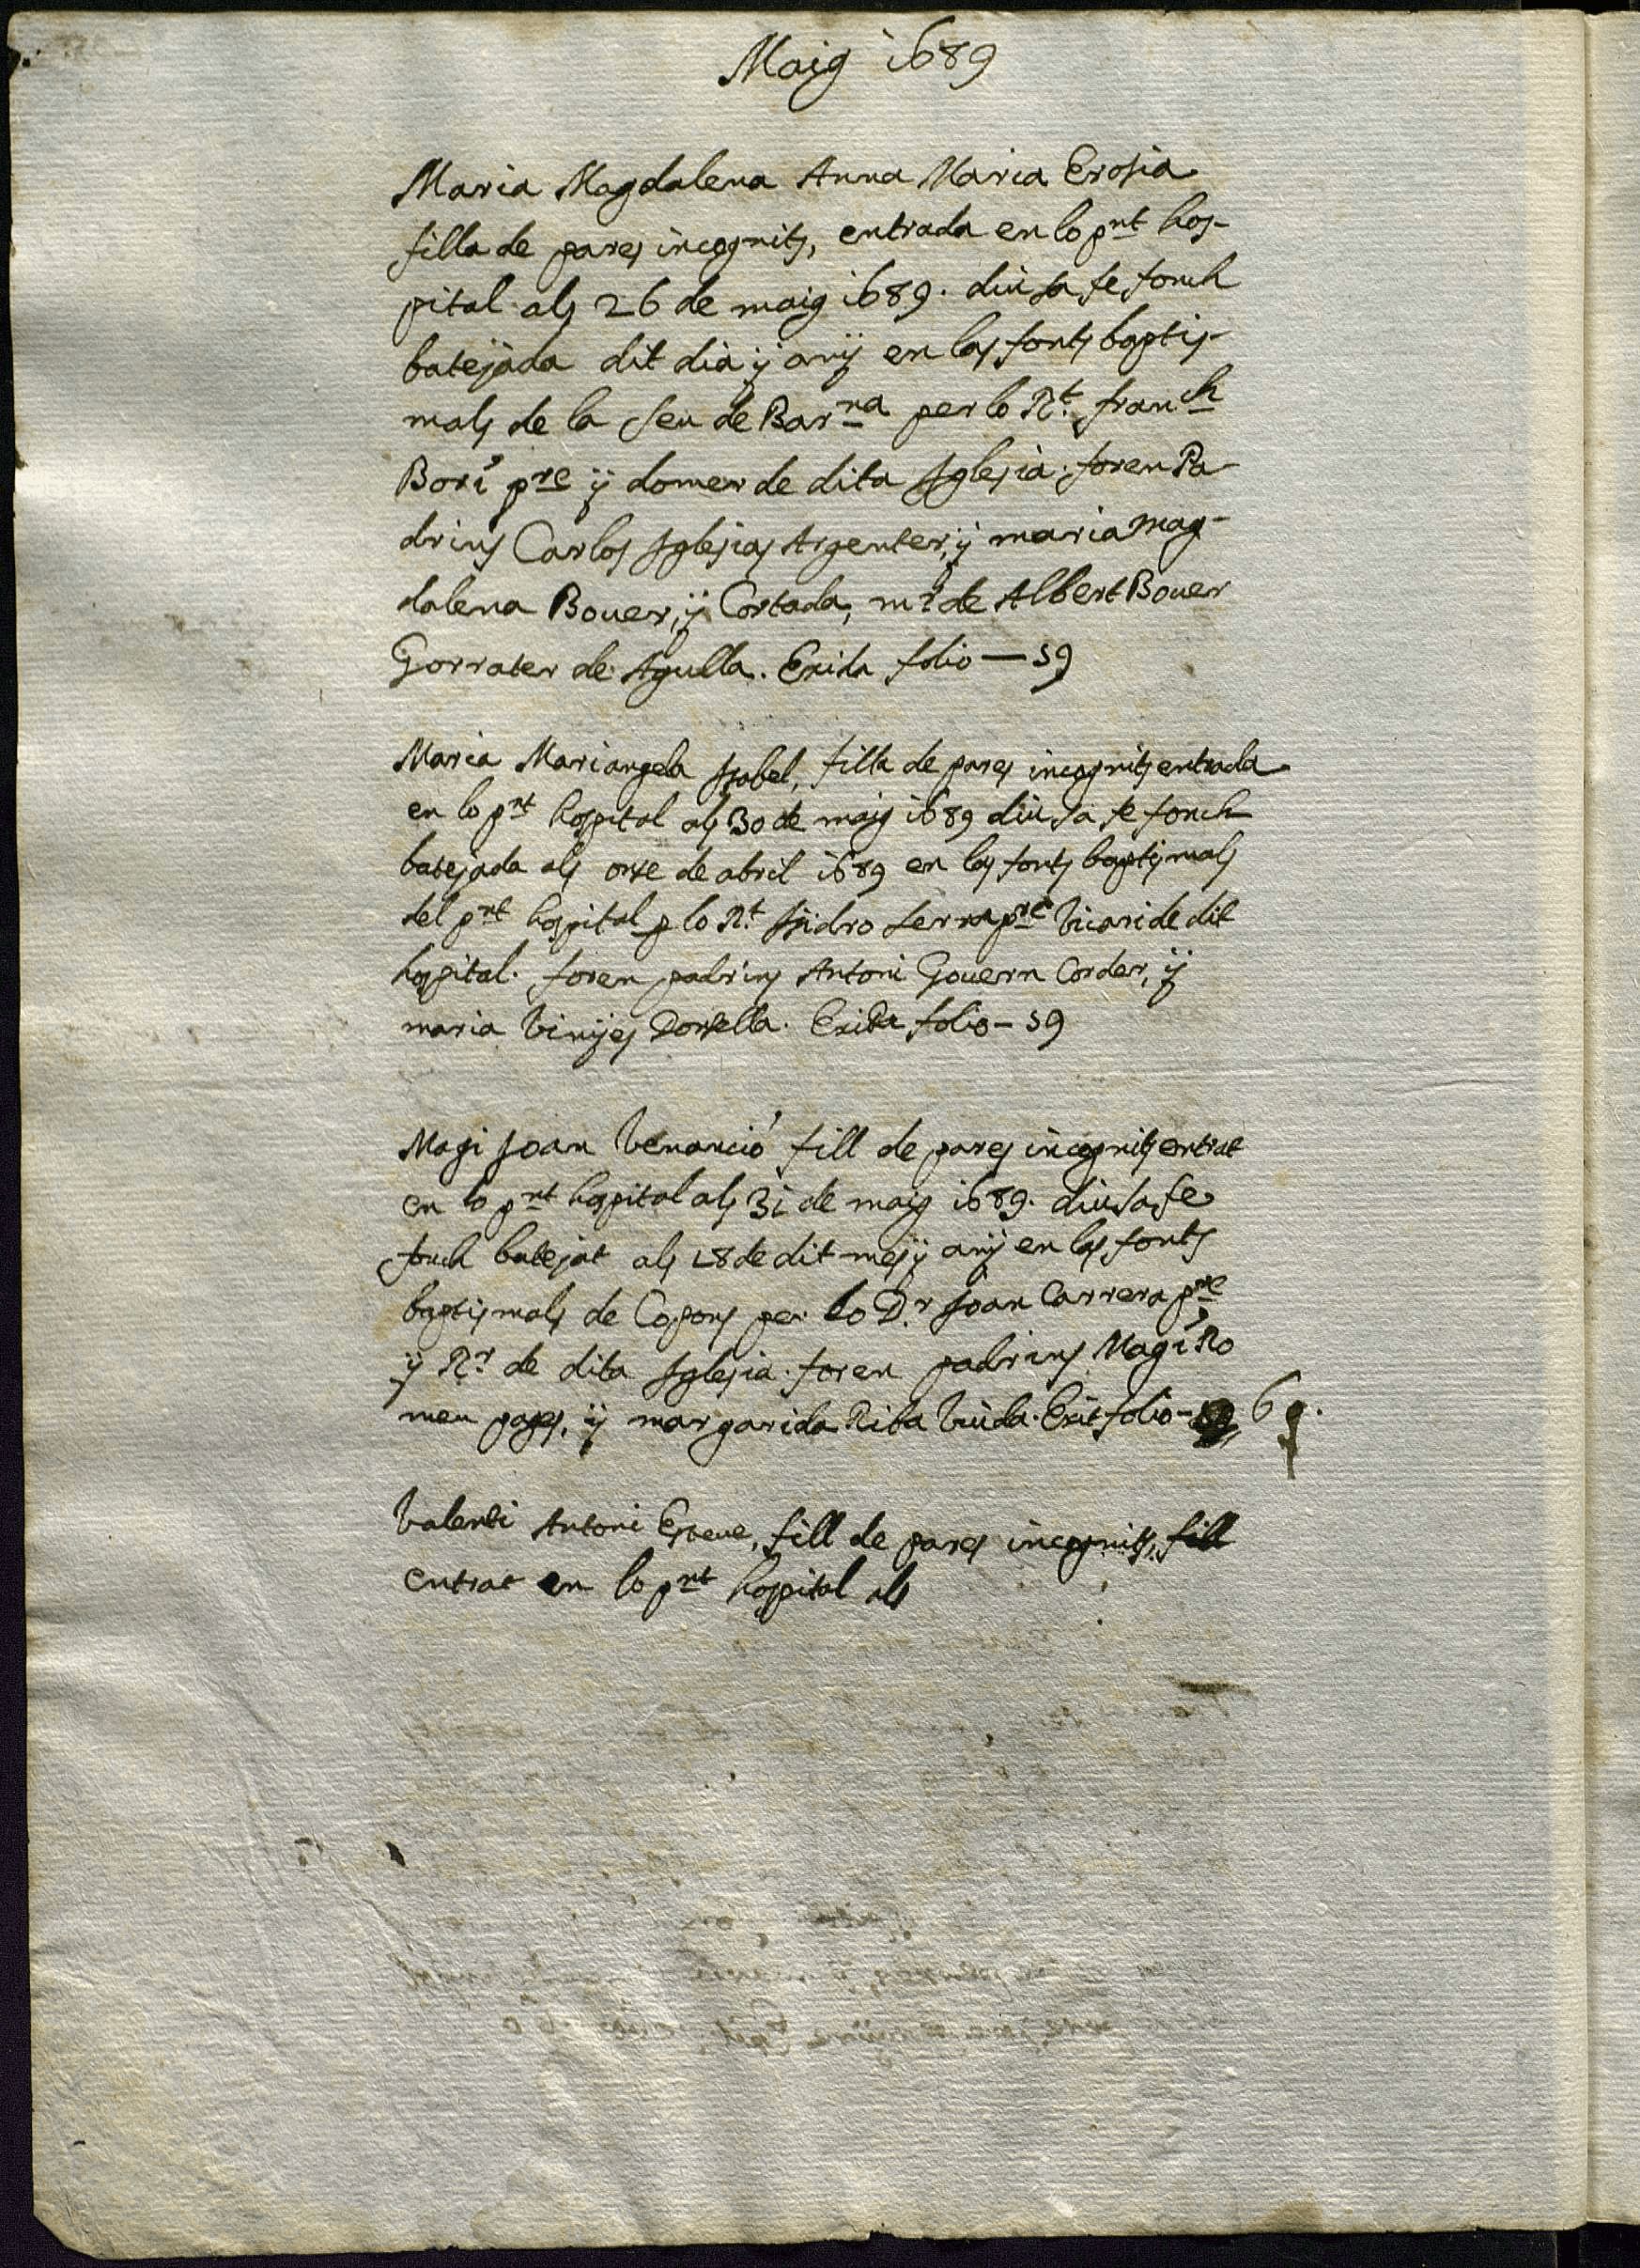 Maig 1689
Maria Magdalena Anna Maria Erosia
filla de pares incognits, entrada en lo pnt hos-
pital als 26 de maig 1689. diu sa fe fonch
batejada dit dia ÿ anÿ en las fonts baptis-
mals de la Seu de Barna per lo Rt. Franch
Borí pre ÿ domer de dita Iglesia. foren Pa-
drins Carlos Iglesias Argenter, ÿ maria Mag-
dalena Bouer, ÿ Cortada, mr. de Albert Bouer
Gorrater de Agulla. Exida folio — 59
Maria Mariangela Isabel, filla de pares incognits entrada
en lo pnt hospital als 30 de maig 1689 diu sa fe fonch
batejada als onse de abril 1689 en las fonts baptismals
del pnt hospital p lo Rt. Isidro Serra pre Vicari de dit
hospital. foren padrins Antoni Gouern Corder, ÿ
maria Vinÿes Donsella. Exida folio - 59
Magi Joan Venanció fill de pares incognits entrat
en lo pnt hospital als 31 de maig 1689. diu sa fe
fonch batejat als 18 de dit mes ÿ anÿ en las fonts
baptismals de Copons per lo Dr. Joan Carrera pre
ÿ Rr. de dita Iglesia. foren padrins Magí Ro
meu pages, ÿ margarida Riba Viuda. Exit folio - 6
Valenti Antoni Esteue, fill de pares incognits, fill
entrat en lo pnt hospital als